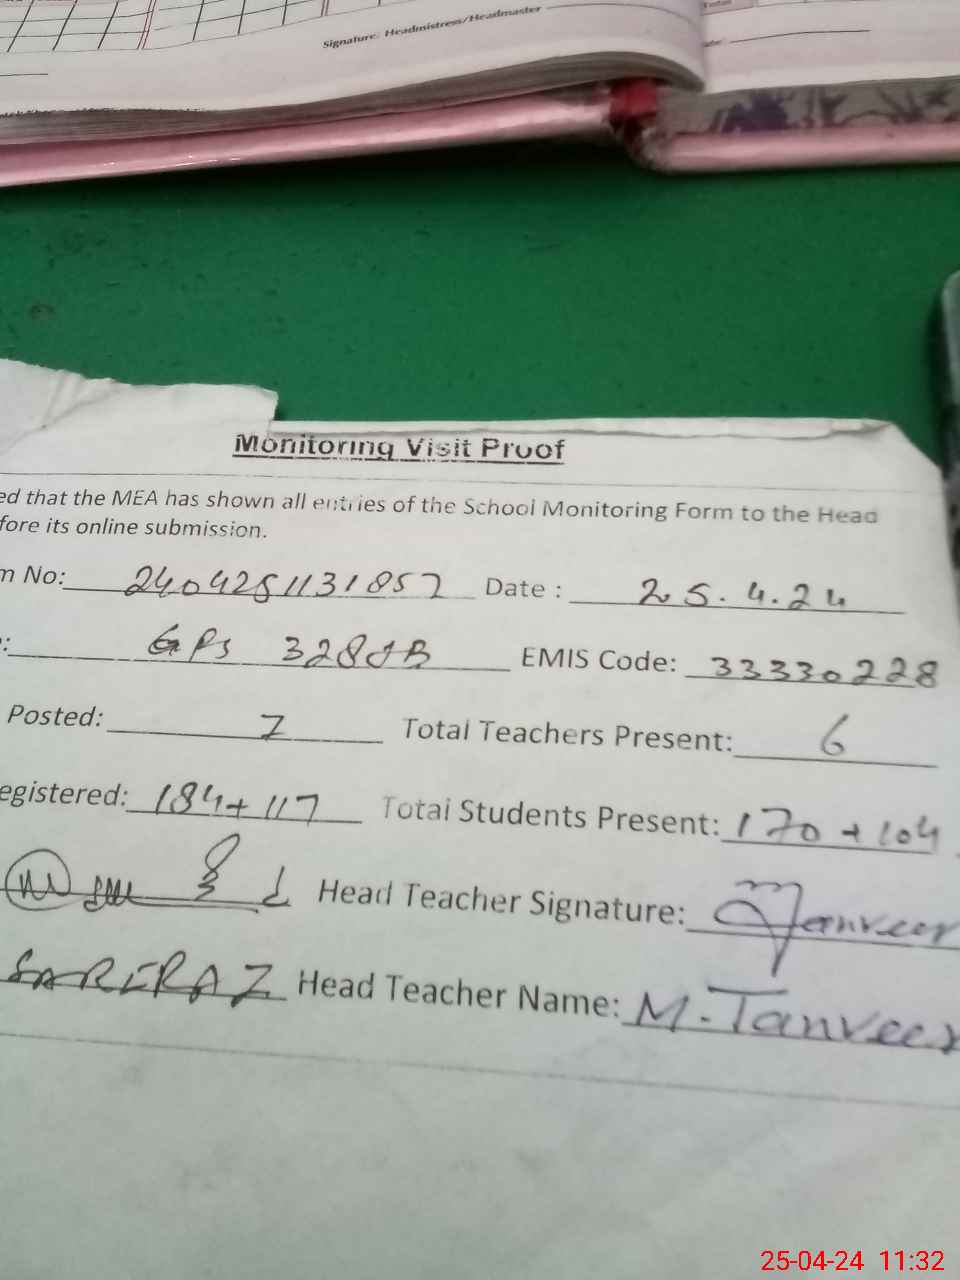 Signature: Headmistress/Headmaster
Monitoring Visit Proof
ed that the MEA has shown all entries of the School Monitoring Form to the Head
fore its online submission.
m No: 2404251131857 Date : 25.4.24
: GPS 328JB EMIS Code: 33330228
Posted: 7 Total Teachers Present: 6
egistered: 184+117 Total Students Present: 170+104
Head Teacher Signature: Tanveer
SARFRAZ Head Teacher Name: M. Tanveer
25-04-24 11:32